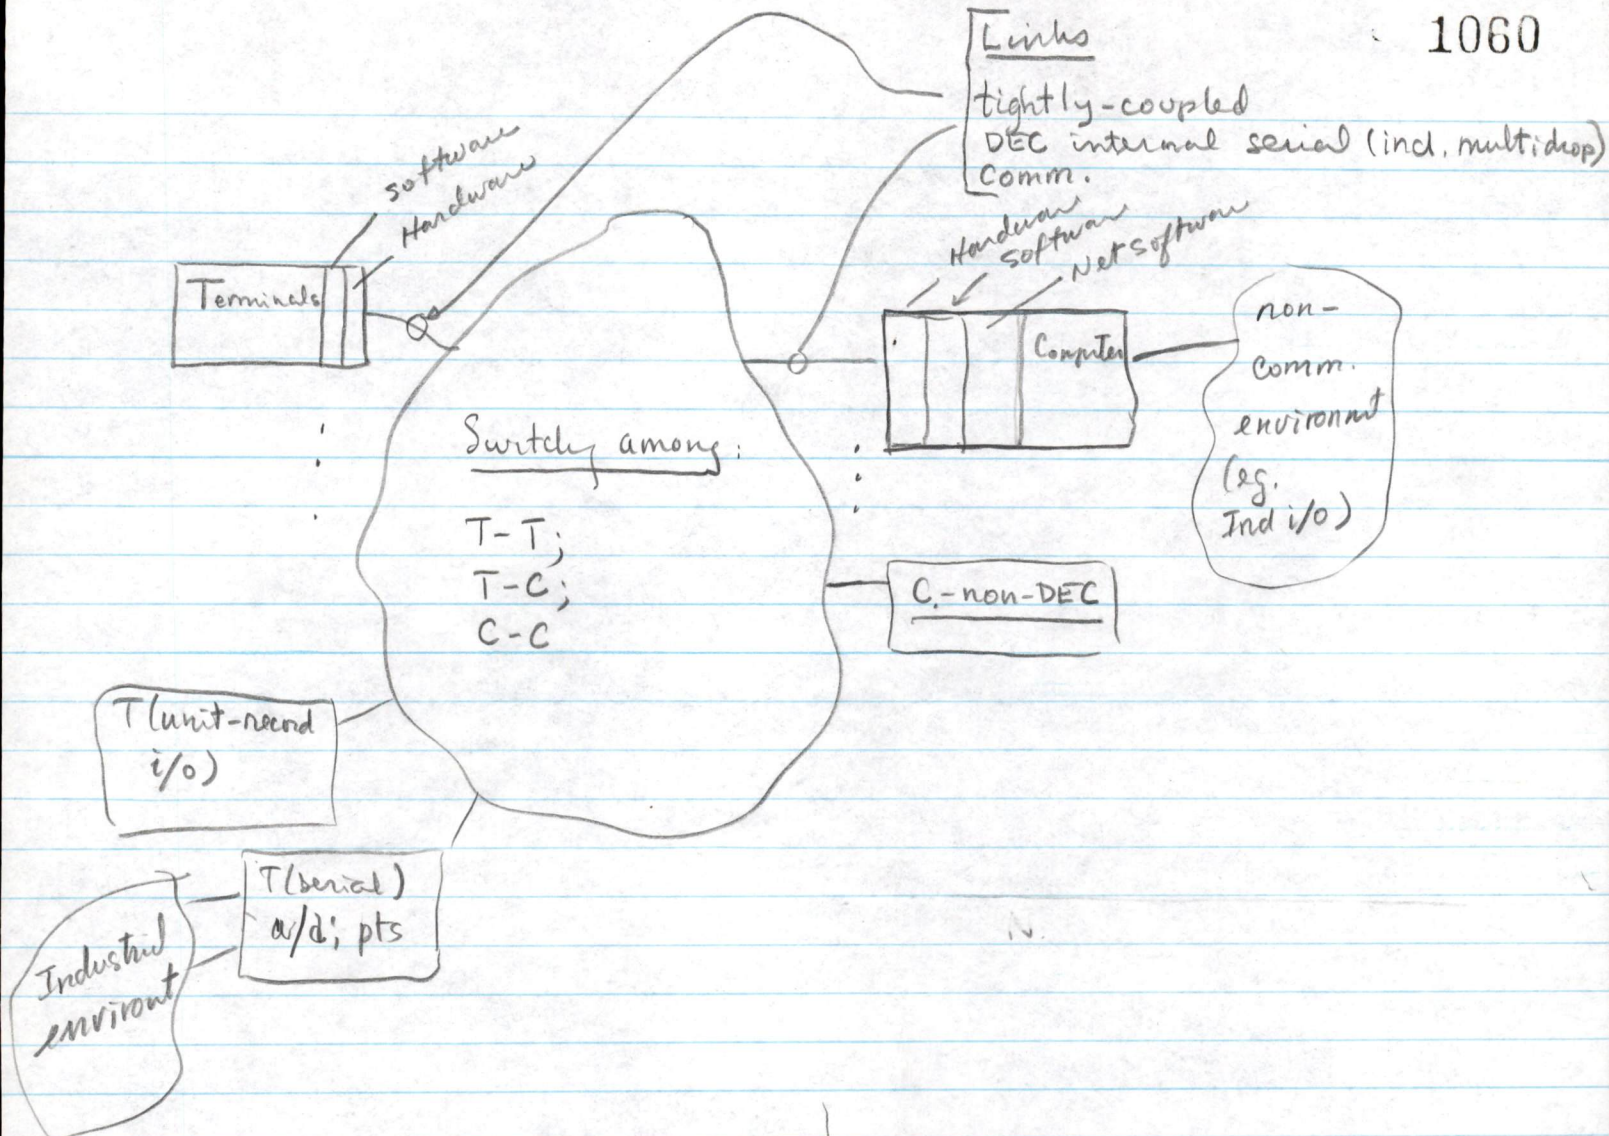 1060
Links
tightly-coupled
DEC internal serial (incl. multidrop)
Comm.
software
Hardware
Hardware
software
Net software
Terminals
Computer
non-
comm.
environmt
(eg.
Ind i/o)
among:
T-T;
T-C;
C-C
C.-non-DEC
T(unit-record
i/o)
T(serial)
a/d; pts
Industrial
environt